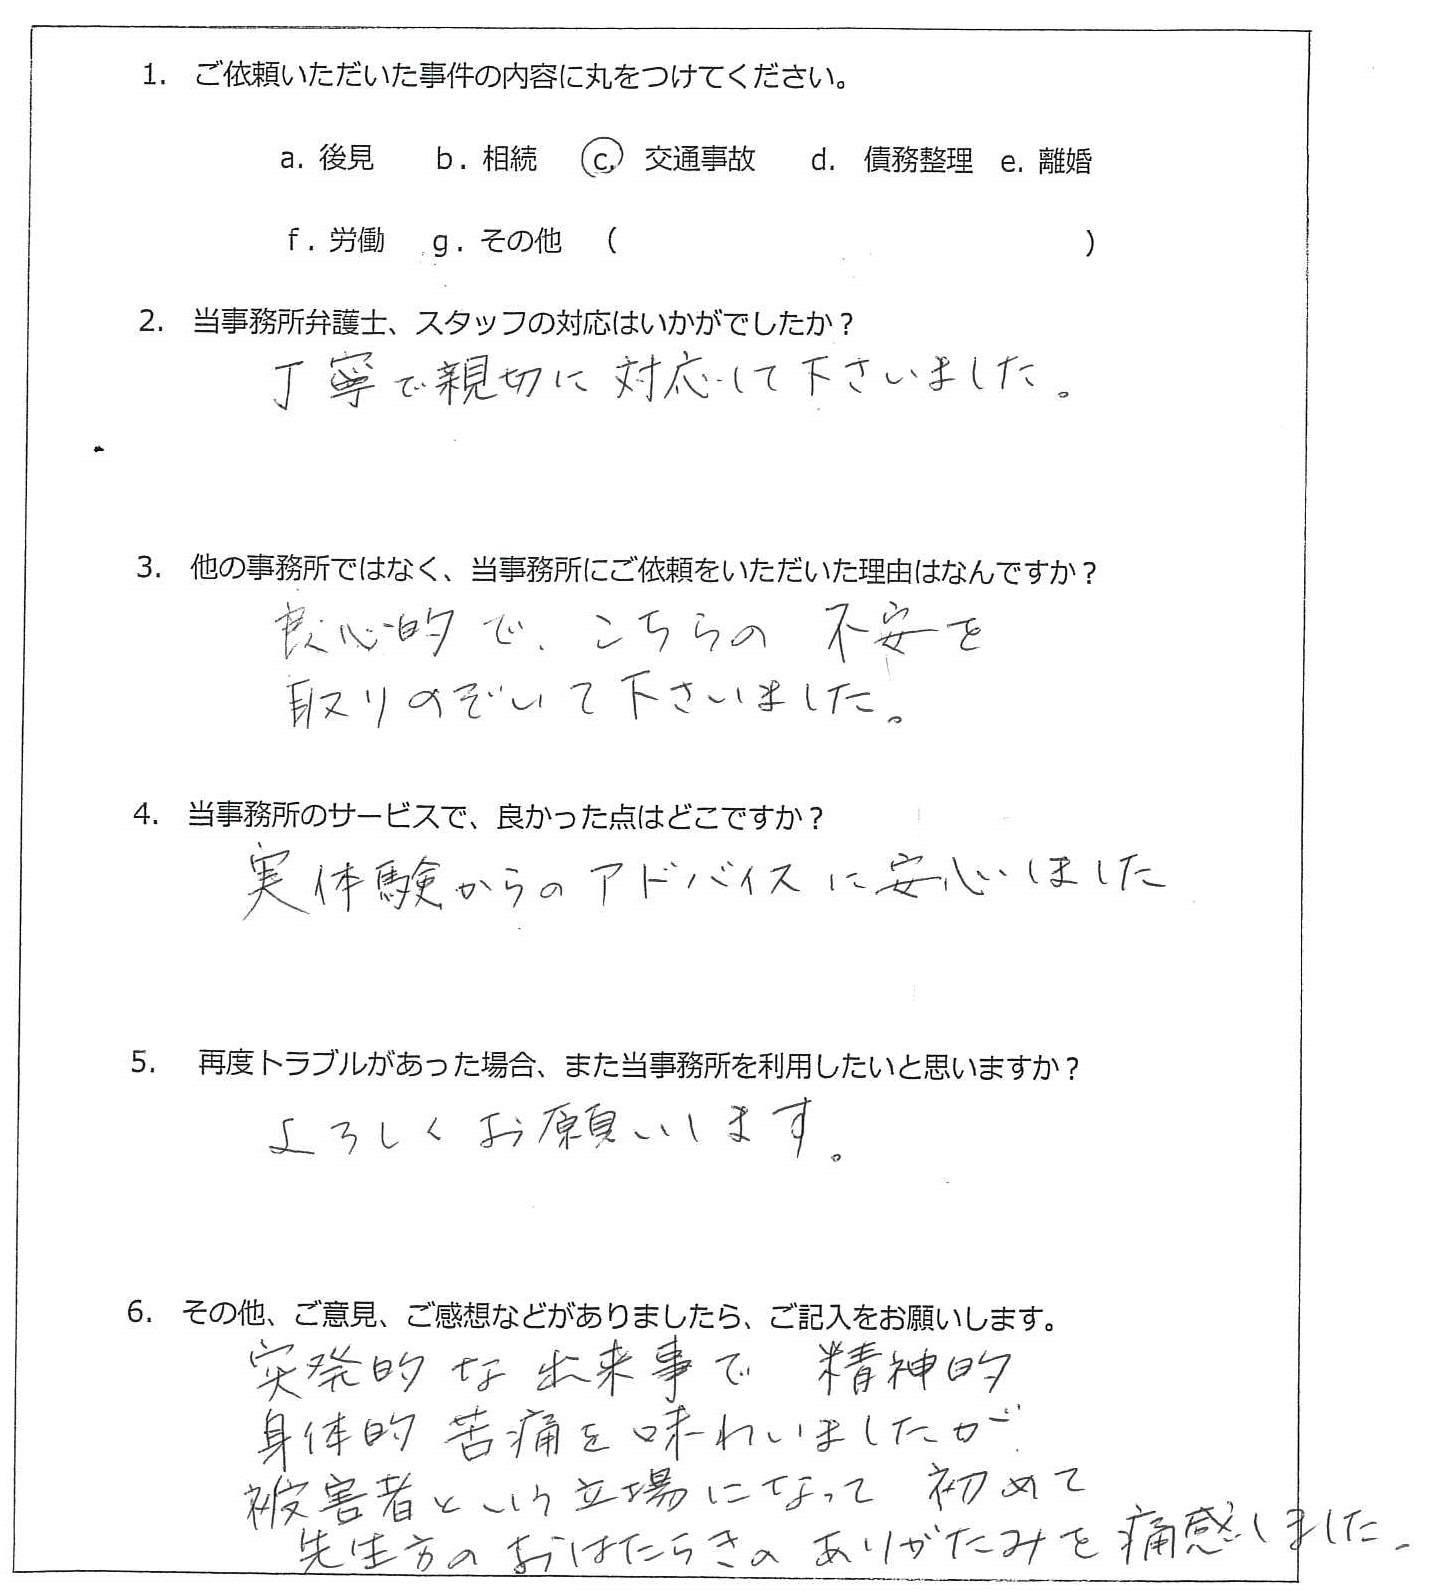 1. ご依頼いただいた事件の内容に丸をつけてください。
a. 後見 b. 相続 c. 交通事故 d. 債務整理 e. 離婚
f. 労働 g. その他 ( )
2. 当事務所弁護士、スタッフの対応はいかがでしたか？
丁寧で親切に対応して下さいました。
3. 他の事務所ではなく、当事務所にご依頼をいただいた理由はなんですか？
良心的で、こちらの不安を
取りのぞいて下さいました。
4. 当事務所のサービスで、良かった点はどこですか？
実体験からのアドバイスに安心しました
5. 再度トラブルがあった場合、また当事務所を利用したいと思いますか？
よろしくお願いします。
6. その他、ご意見、ご感想などがありましたら、ご記入をお願いします。
突発的な出来事で 精神的
身体的苦痛を味わいましたが
被害者という立場になって 初めて
先生方のおはたらきのありがたみを痛感しました。